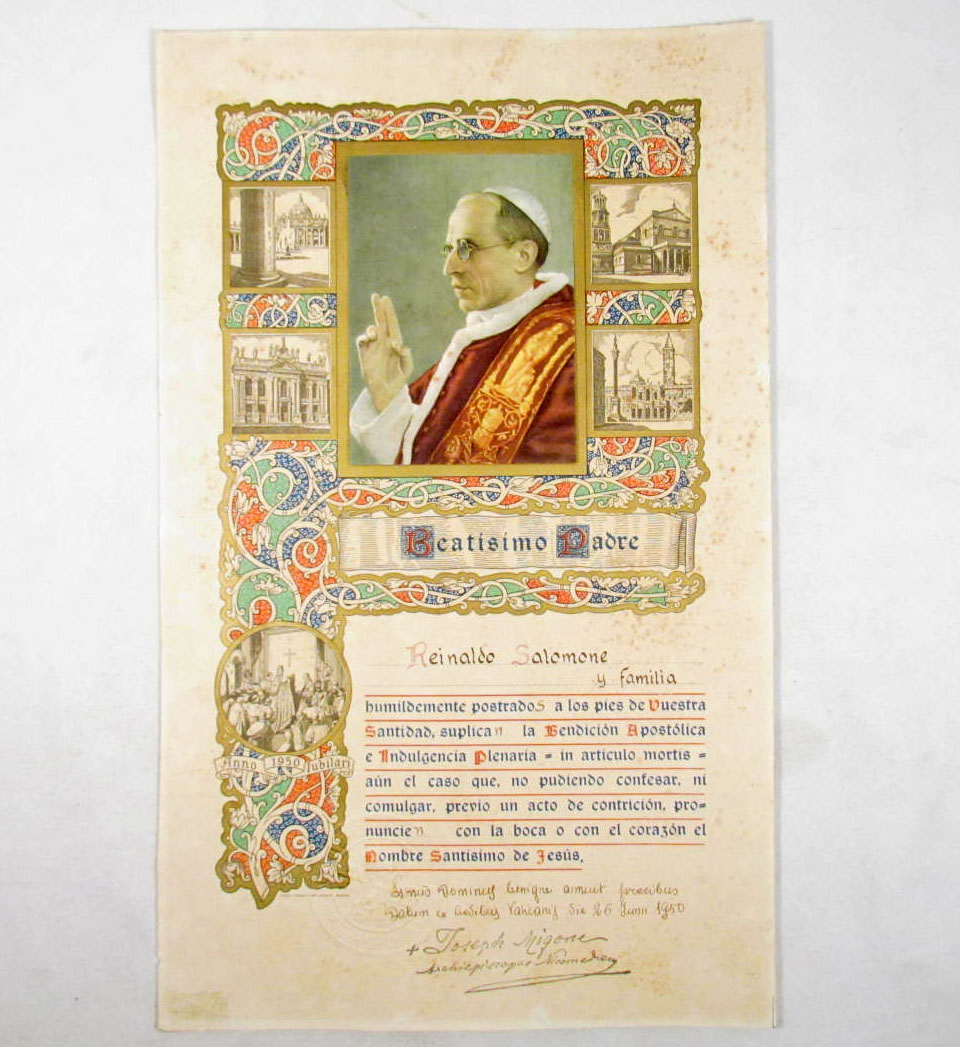 Beatísimo Padre
Reinaldo Salomone
y familia
humildemente postrados a los pies de Vuestra
Santidad, suplican la Bendición Apostólica
e Indulgencia Plenaria = in articulo mortis =
aún el caso que, no pudiendo confesar, ni
comulgar, previo un acto de contrición, pro=
nuncien con la boca o con el corazón el
Nombre Santísimo de Jesús.
Anno 1950 Jubilari
benigne annuit precibus
Datum ex Aedibus Vaticanis die 26 Junii 1950
+ Joseph Migone
Archiepiscopus Nicomedien